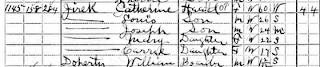 1145 158 284 Firek Catherine Head O F W 60 W 44
Louis Son M W 26 S
Joseph Son M W 24 M
Mary Daughter F W 22 S
Carryl Daughter F W 17 S
Doherty William Boarder M W S